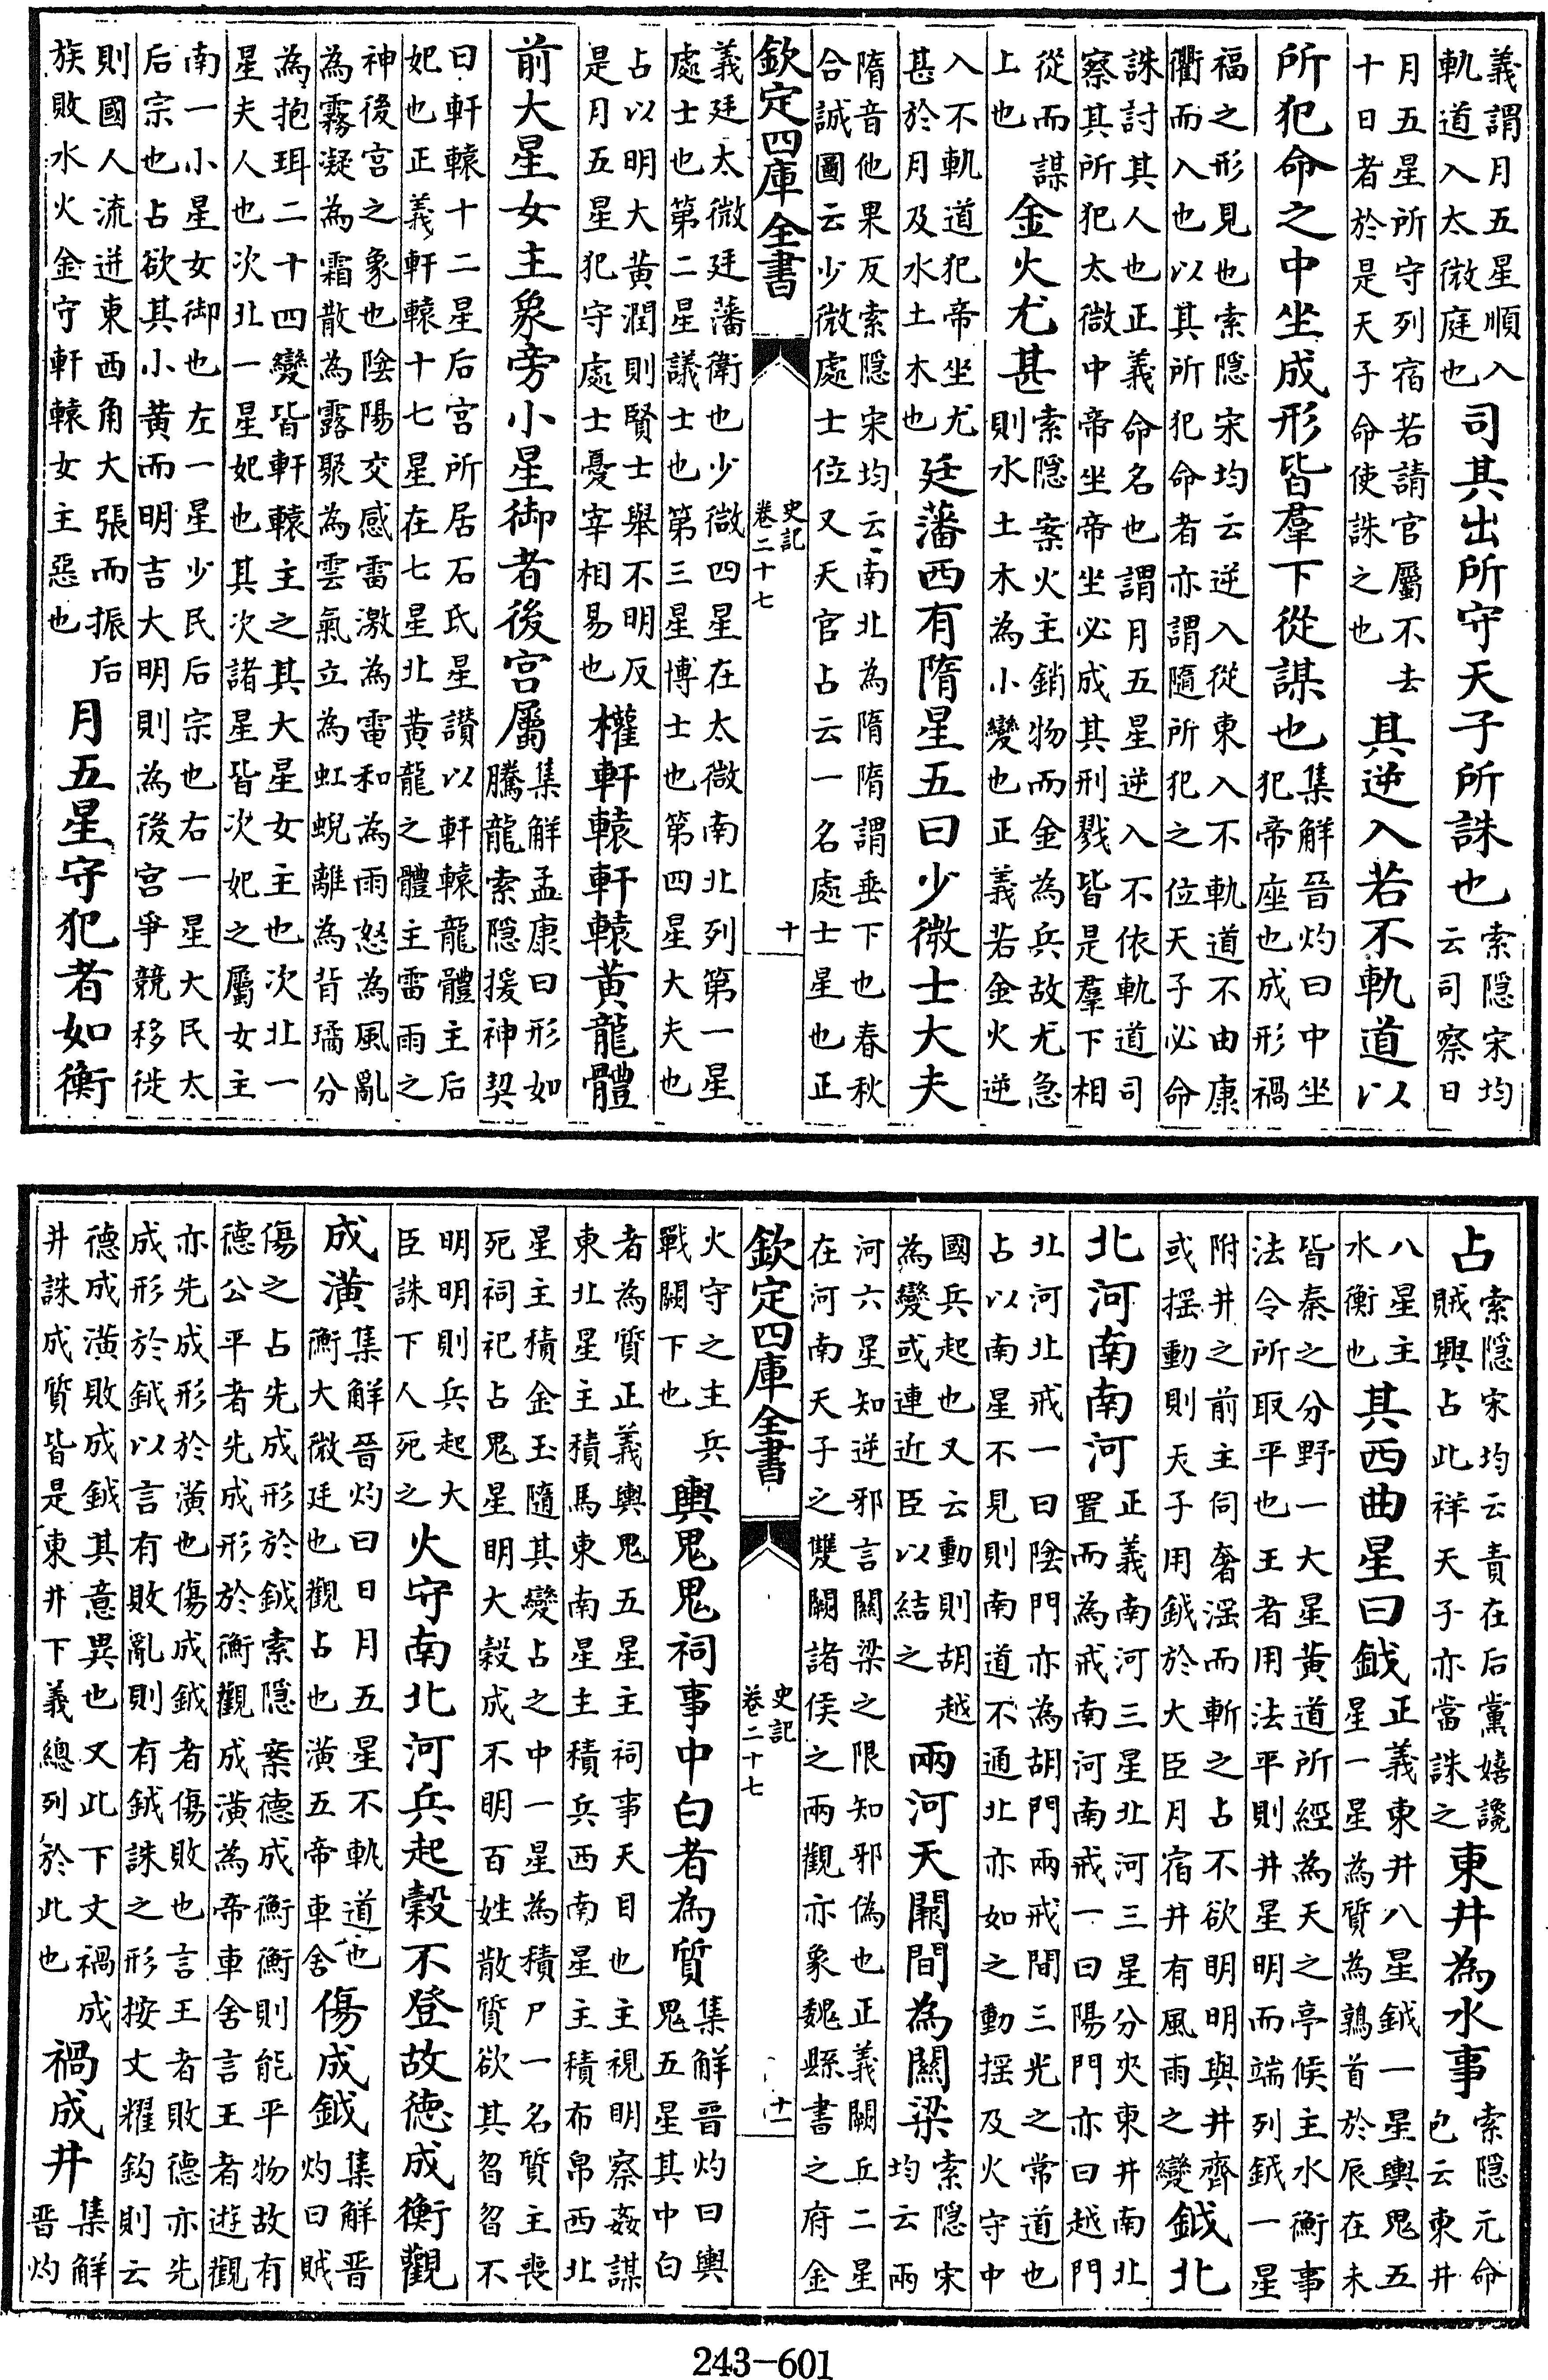 義謂月五星順入
軌道入太微庭也
司其出所守天子所誅也
索隱宋均
云司察日
月五星所守列宿若請官屬不去
十日者於是天子命使誅之也
其逆入若不軌道以
所犯命之中坐成形皆羣下從謀也
集解晉灼曰中坐
犯帝座也成形禍
福之形見也索隱宋均云逆入從東入不軌道不由康
衢而入也以其所犯命者亦謂隨所犯之位天子必命
誅討其人也正義命名也謂月五星逆入不依軌道司
察其所犯太微中帝坐帝坐必成其刑戮皆是羣下相
從而謀
上也
金火尤甚
索隱案火主銷物而金為兵故尤急
則水土木為小變也正義若金火逆
入不軌道犯帝坐尤
甚於月及水土木也
廷藩西有隋星五曰少微士大夫
隋音他果反索隱宋均云南北為隋隋謂垂下也春秋
合誠圖云少微處士位又天官占云一名處士星也正
欽定四庫全書
史記
卷二十七
十
義廷太微廷藩衛也少微四星在太微南北列第一星
處士也第二星議士也第三星博士也第四星大夫也
占以明大黃潤則賢士舉不明反
是月五星犯守處士憂宰相易也
權軒轅軒轅黃龍體
前大星女主象旁小星御者後宮屬
集解孟康曰形如
騰龍索隱援神契
曰軒轅十二星后宮所居石氏星讚以軒轅龍體主后
妃也正義軒轅十七星在七星北黃龍之體主雷雨之
神後宮之象也陰陽交感雷激為電和為雨怒為風亂
為霧凝為霜散為露聚為雲氣立為虹蜺離為背璚分
為抱珥二十四變皆軒轅主之其大星女主也次北一
星夫人也次北一星妃也其次諸星皆次妃之屬女主
南一小星女御也左一星少民后宗也右一星大民太
后宗也占欲其小黃而明吉大明則為後宮爭競移徙
則國人流迸東西角大張而振后
族敗水火金守軒轅女主惡也
月五星守犯者如衡
占
索隱宋均云責在后黨嬉讒
賊興占此祥天子亦當誅之
東井為水事
索隱元命
包云東井
八星主
水衡也
其西曲星曰鉞
正義東井八星鉞一星輿鬼五
星一星為質為鶉首於辰在未
皆秦之分野一大星黃道所經為天之亭候主水衡事
法令所取平也王者用法平則井星明而端列鉞一星
附井之前主伺奢淫而斬之占不欲明明與井齊
或搖動則天子用鉞於大臣月宿井有風雨之變
鉞北
北河南南河
正義南河三星北河三星分夾東井南北
置而為戒南河南戒一曰陽門亦曰越門
北河北戒一曰陰門亦為胡門兩戒間三光之常道也
占以南星不見則南道不通北亦如之動搖及火守中
國兵起也又云動則胡越
為變或連近臣以結之
兩河天闕間為關梁
索隱宋
均云兩
河六星知逆邪言關梁之限知邪偽也正義闕丘二星
在河南天子之雙闕諸侯之兩觀亦象魏縣書之府金
欽定四庫全書
史記
卷二十七
十一
火守之主兵
戰闕下也
輿鬼鬼祠事中白者為質
集解晉灼曰輿
鬼五星其中白
者為質正義輿鬼五星主祠事天目也主視明察姦謀
東北星主積馬東南星主積兵西南星主積布帛西北
星主積金玉隨其變占之中一星為積尸一名質主喪
死祠祀占鬼星明大穀成不明百姓散質欲其曶曶不
明明則兵起大
臣誅下人死之
火守南北河兵起穀不登故德成衡觀
成潢
集解晉灼曰日月五星不軌道也
衡大微廷也觀占也潢五帝車舍
傷成鉞
集解晉
灼曰賊
傷之占先成形於鉞索隱案德成衡衡則能平物故有
德公平者先成形於衡觀成潢為帝車舍言王者遊觀
亦先成形於潢也傷成鉞者傷敗也言王者敗德亦先
成形於鉞以言有敗亂則有鉞誅之形按文耀鈎則云
德成潢敗成鉞其意異也又此下文禍成
井誅成質皆是東井下義總列於此也
禍成井
集解
晉灼
243-601